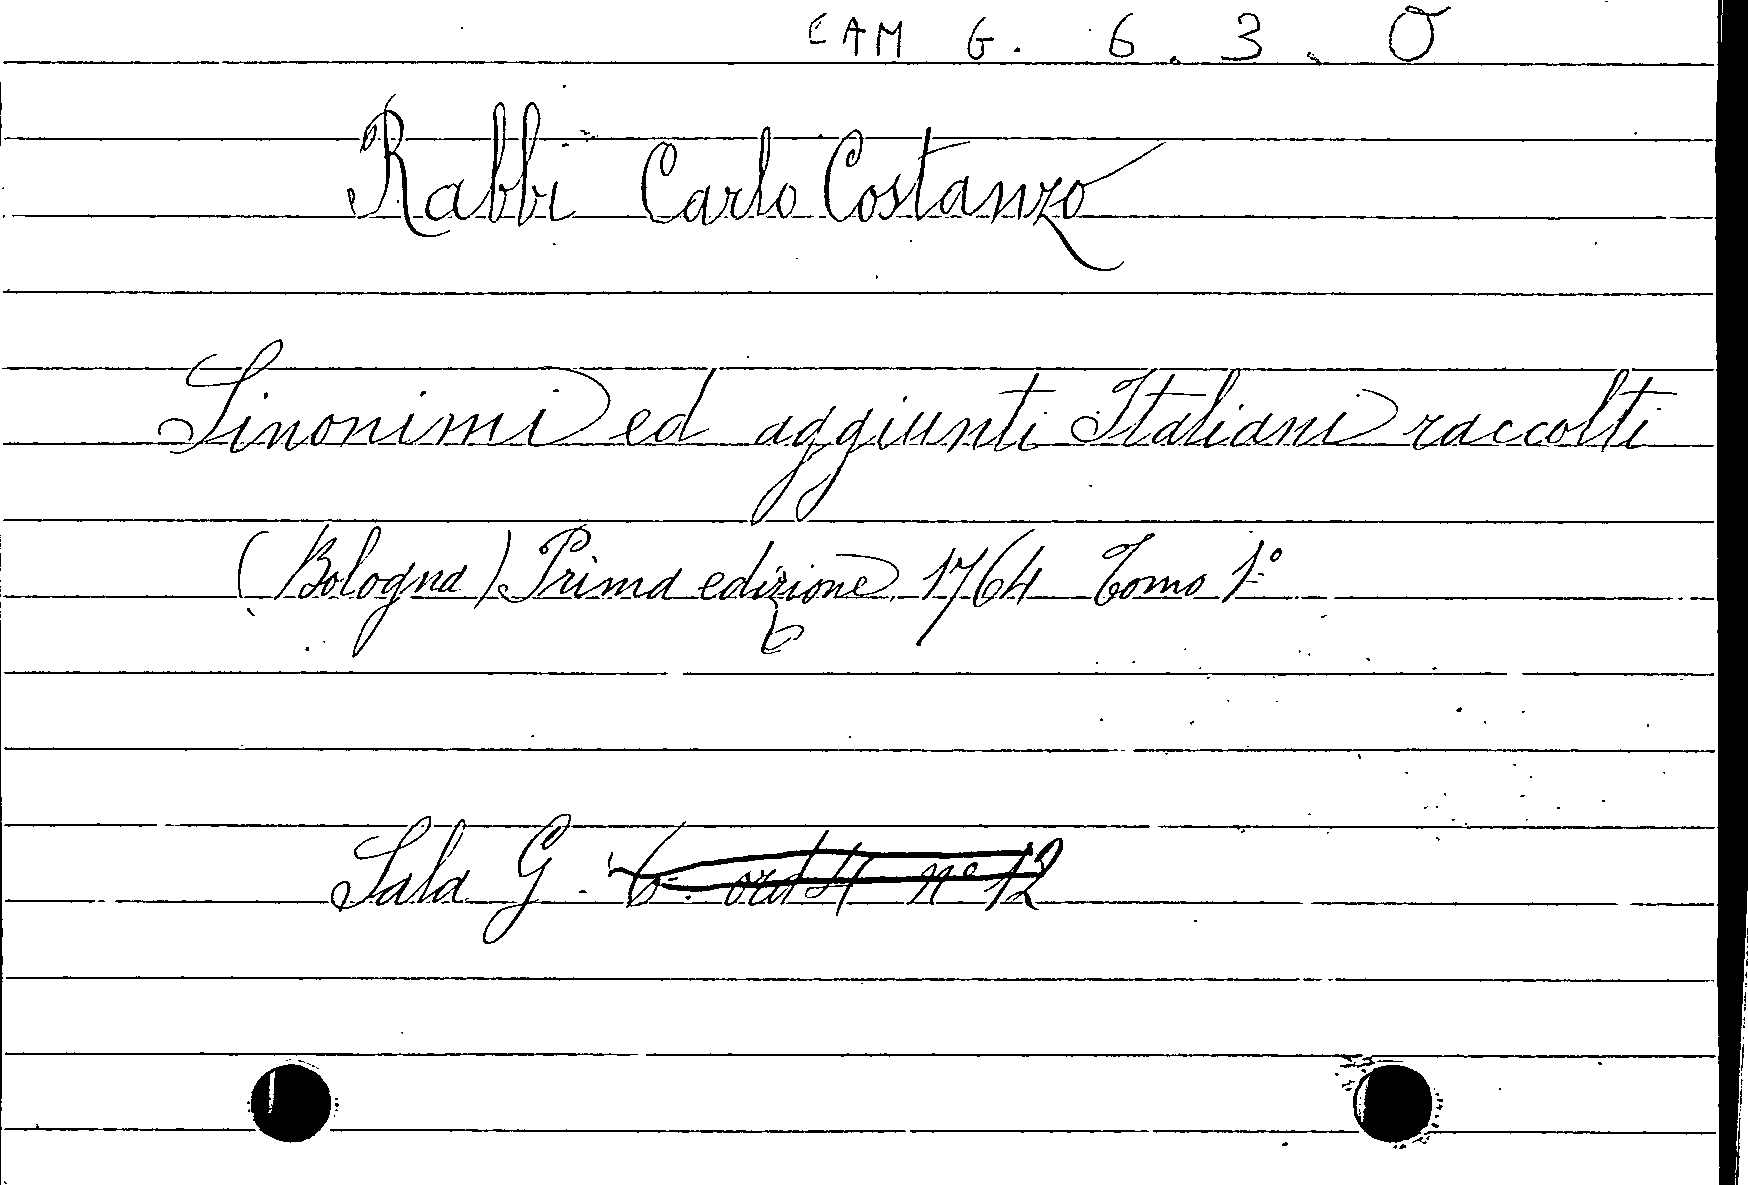 CAM G. 6. 3. O
Rabbi Carlo Costanzo
Sinonimi ed aggiunti Italiani raccolti
(Bologna) Prima edizione 1764 Tomo 1º
Sala G. 6. ord 4 nº 12